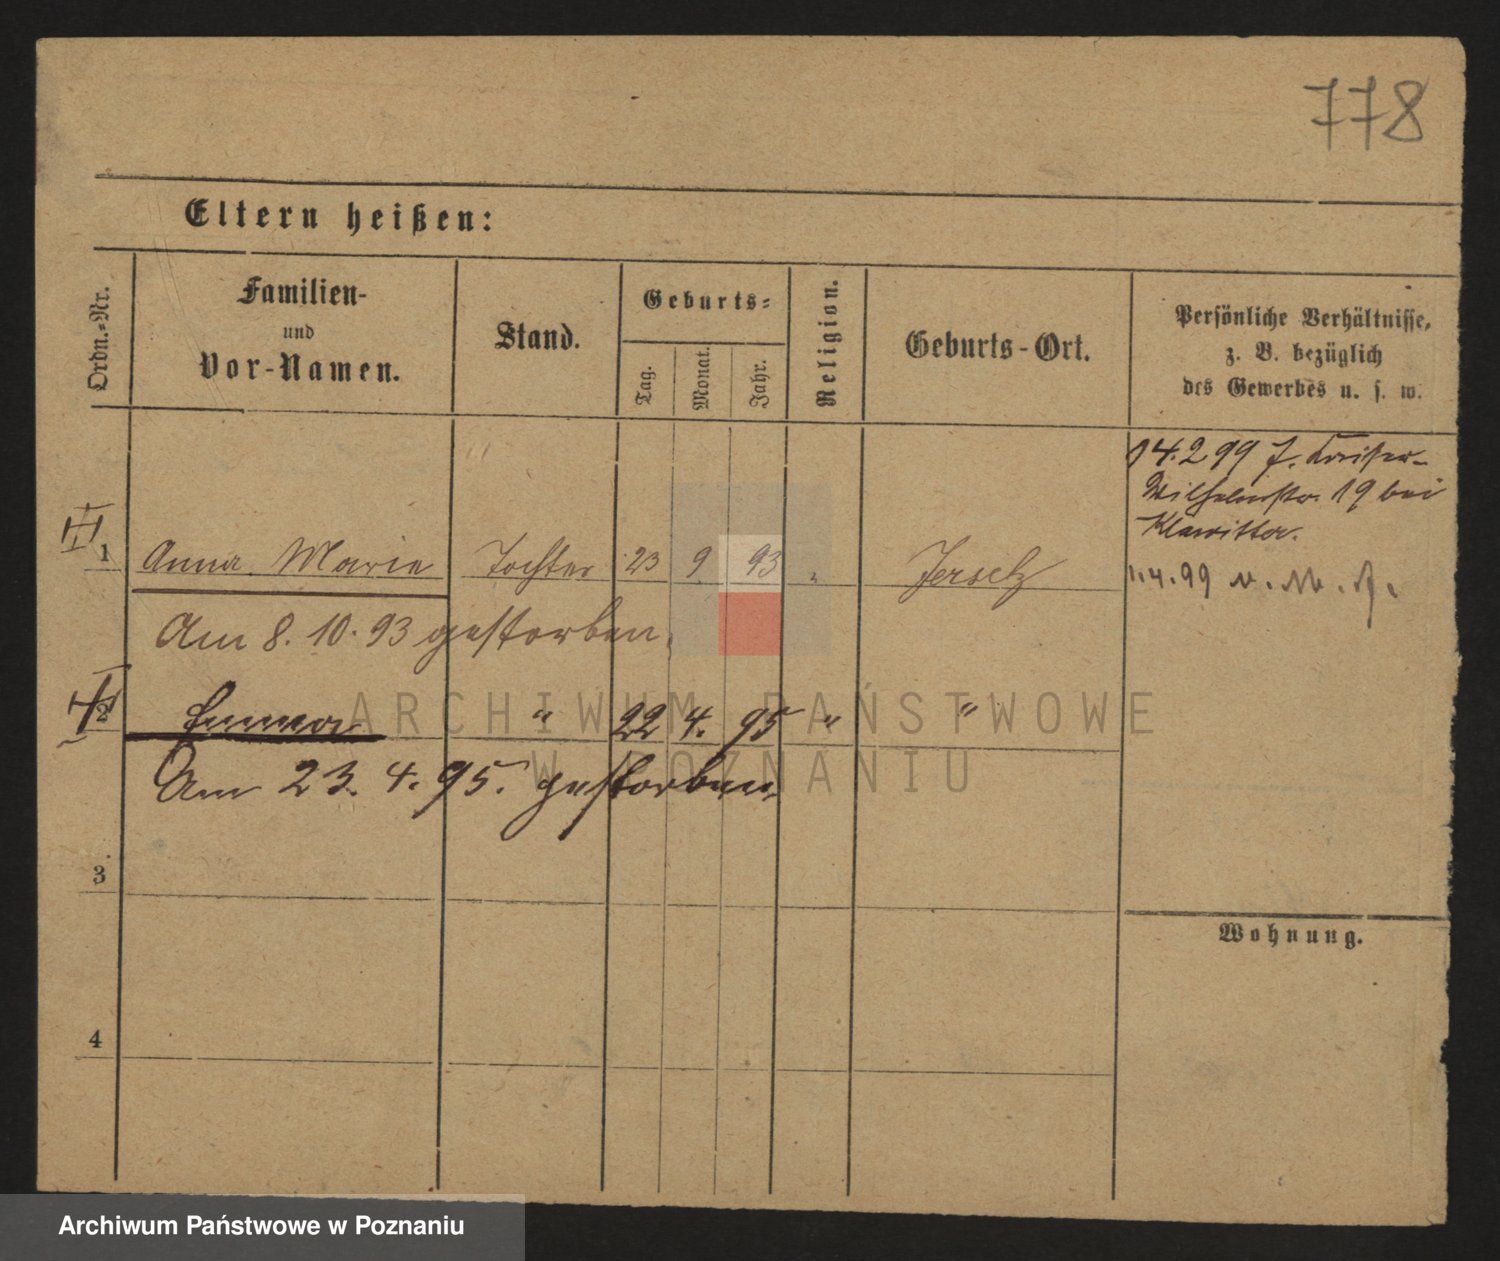 778
Eltern heißen:
Ordn.-Nr.
Familien-
und
Vor-Namen.
Stand.
Geburts-
Tag.
Monat.
Jahr.
Religion.
Geburts-Ort.
Persönliche Verhältnisse,
z. B. bezüglich
des Gewerbes u. s. w.
14.2 99 J. Kaiser-
Wilhelmstr. 19 bei
Klawitter.
1 Anna Marie Tochter 23 9 93 " Jersitz
1.4.99 v.
Am 8. 10. 93 gestorben.
2 Emma " 22 4. 95 " "
Am 23. 4. 95. gestorben.
3
Wohnung.
4
ARCHIWUM PAŃSTWOWE
W POZNANIU
Archiwum Państwowe w Poznaniu